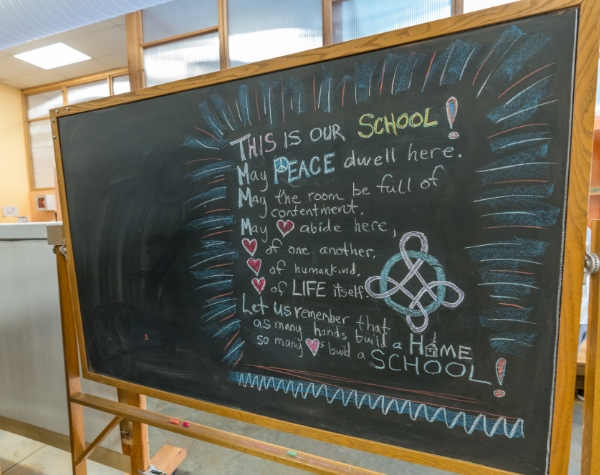 THIS IS OUR SCHOOL!
May PEACE dwell here.
May the room be full of
contentment.
May ♥ abide here,
♥ of one another,
♥ of humankind,
♥ of LIFE itself.
Let us remember that
as many hands build a HOME
so many ♥s build a SCHOOL!